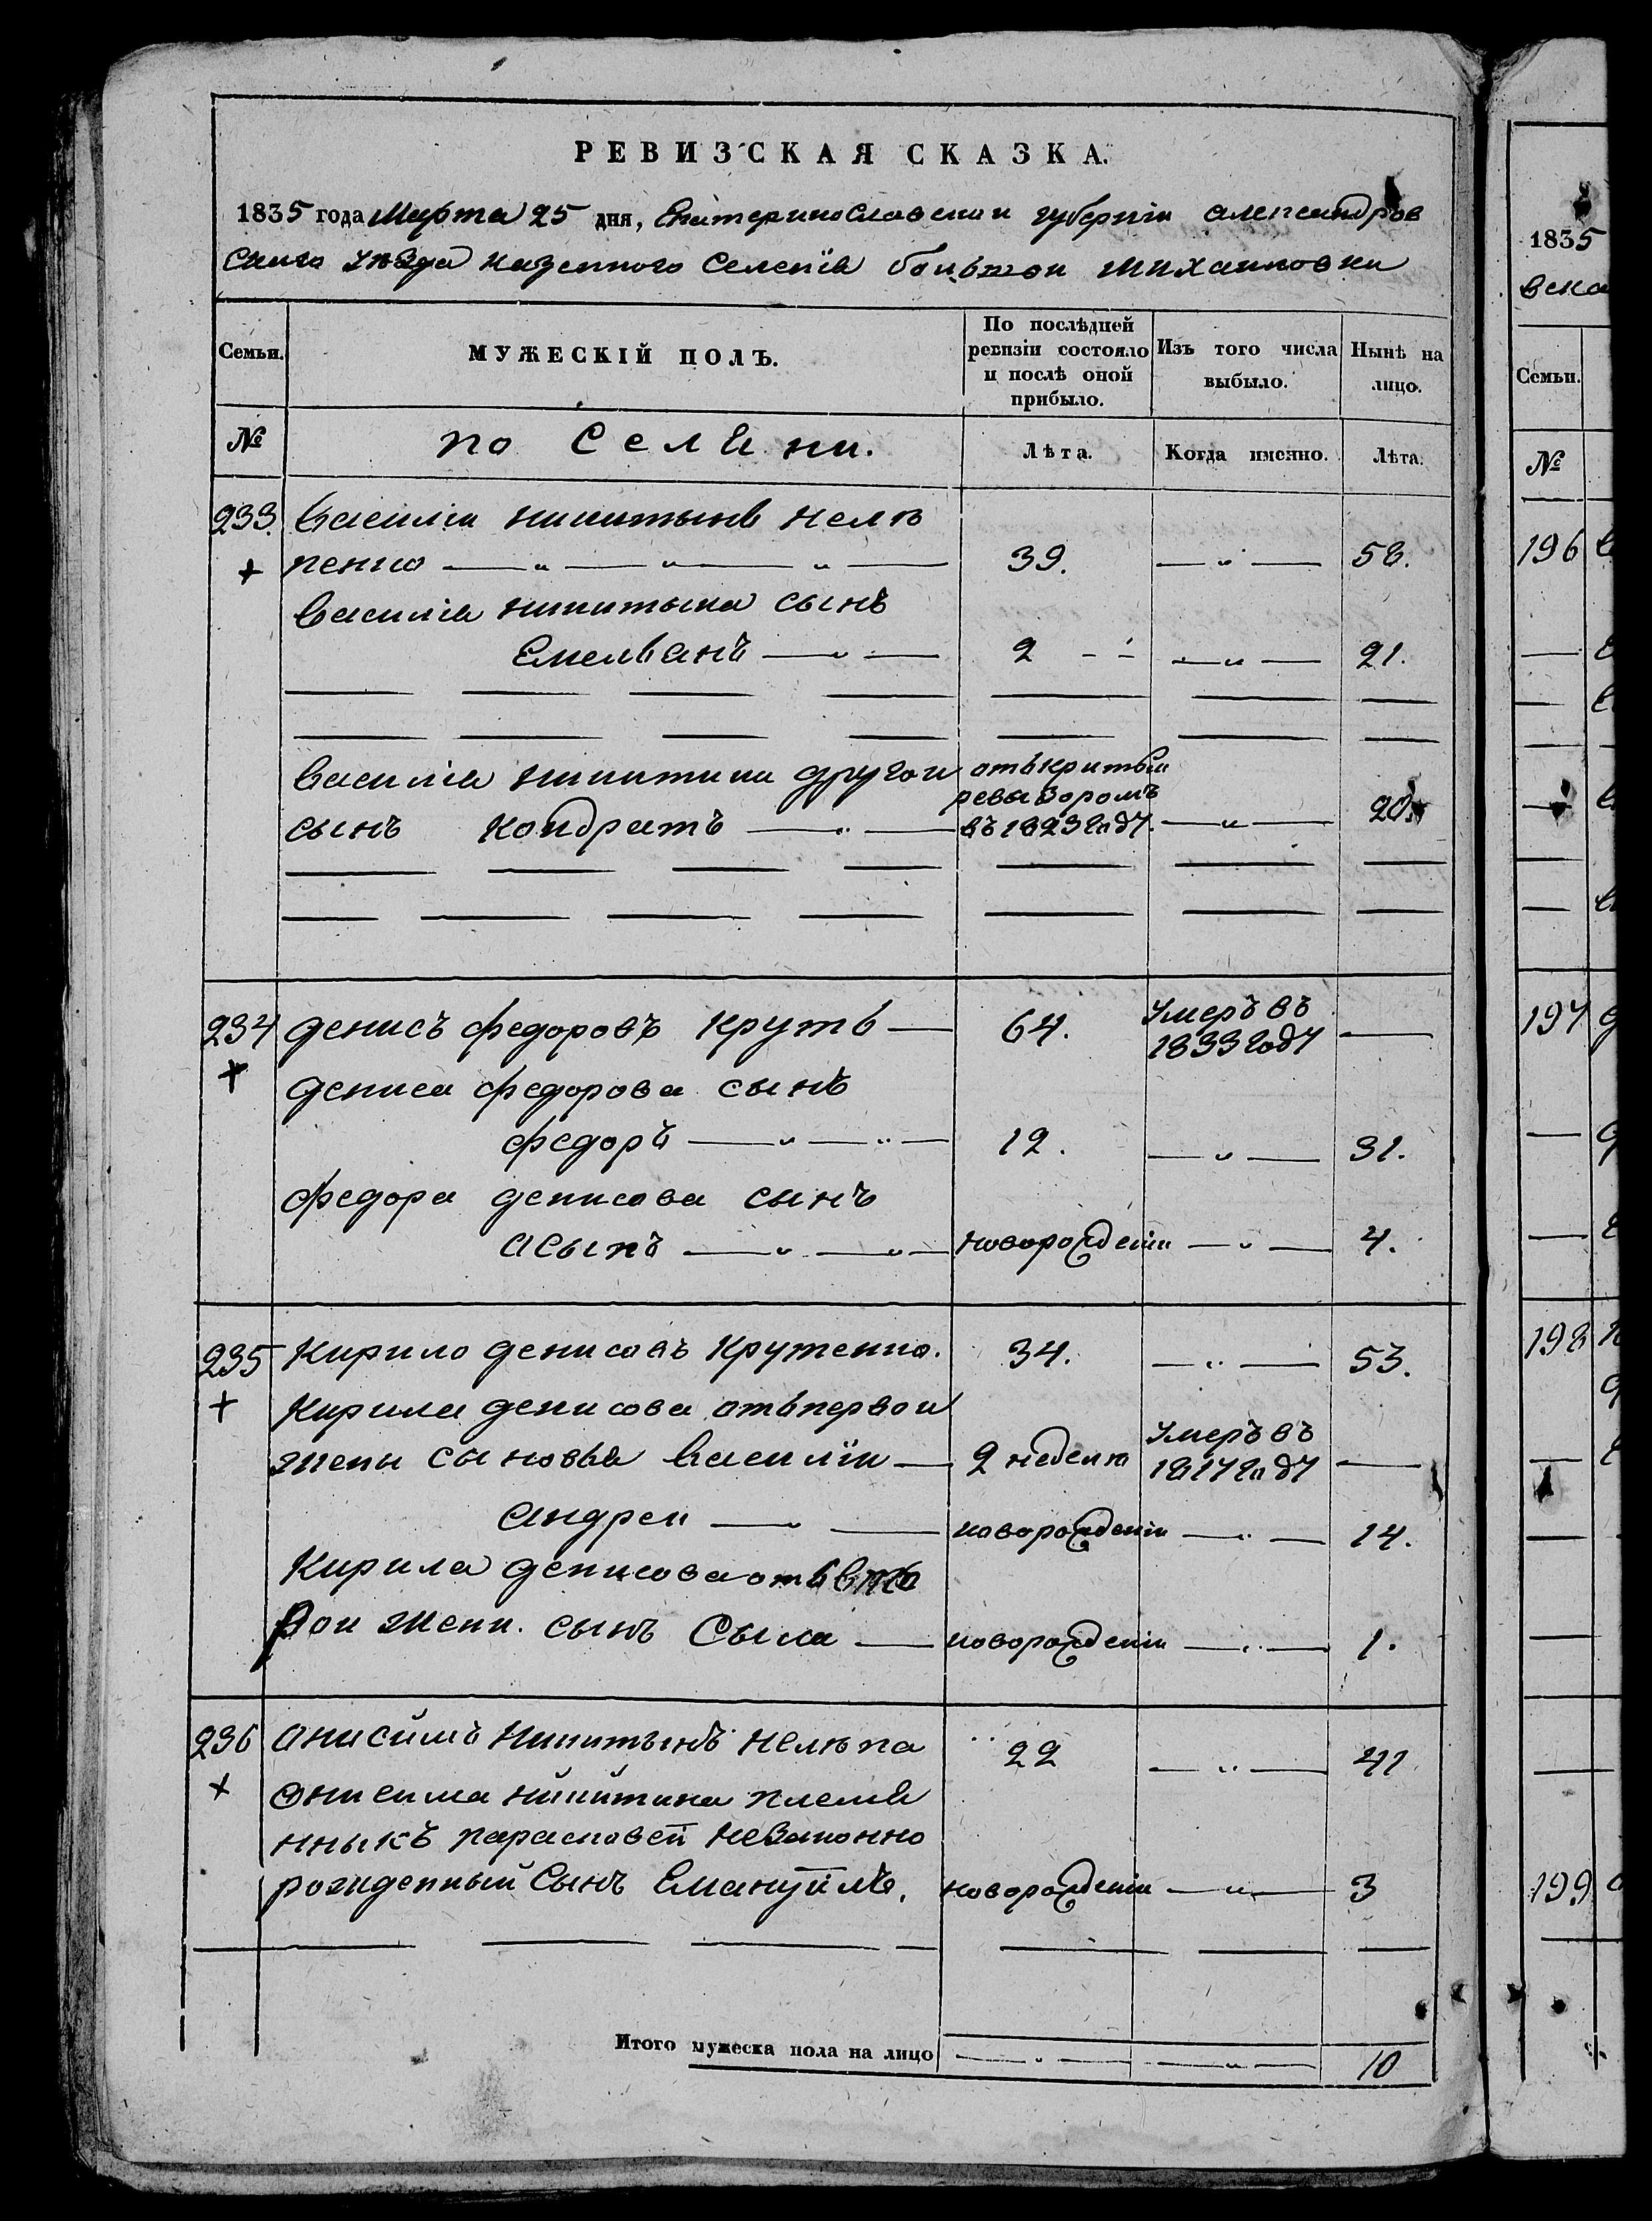 РЕВИЗСКАЯ СКАЗКА.
1835 года Марта 25 дня, Екатеринославскои губерніи александров
скаго уѣзда казенного селенія большои михаиловки
Семьи. МУЖЕСКІЙ ПОЛЪ. По послѣдней ревизіи состояло и послѣ оной прибыло. Изъ того числа выбыло. Нынѣ на лицо.
№ по селяни. Лѣта. Когда именно. Лѣта.
233. Василіи никитынъ нелѣ
пенко 39. 58.
Василіа никитына сынъ
Емельянъ 2 21.
Василіа никитина другои отькритыи
ревызоромъ
сынъ кондратъ въ 1823 году. 20.
234 денисъ федоровъ круть 64. Умеръ въ
1833 году
дениса федорова сынъ
федоръ 12. 31.
федора денисова сынъ
асыпъ новорожденіи 4.
235 Кирило денисовъ Крутенко. 34. 53.
Кирила денисова отьпервои
жены сыновья Василіи 2 недели Умеръ въ
1817 году
андреи новорожденіи 14.
Кирила денисова отьвто
рои жени. сынъ Сыла новорожденіи 1.
236 анисимъ Никитынъ нелѣпа 22 41
Онисима никитина племя
нныкъ парасковеи незаконно
рожденный сынъ Емануилъ. новорожденіи 3
Итого мужеска пола на лицо 10
1835
вска
Семьи.
№
196
197
198
199